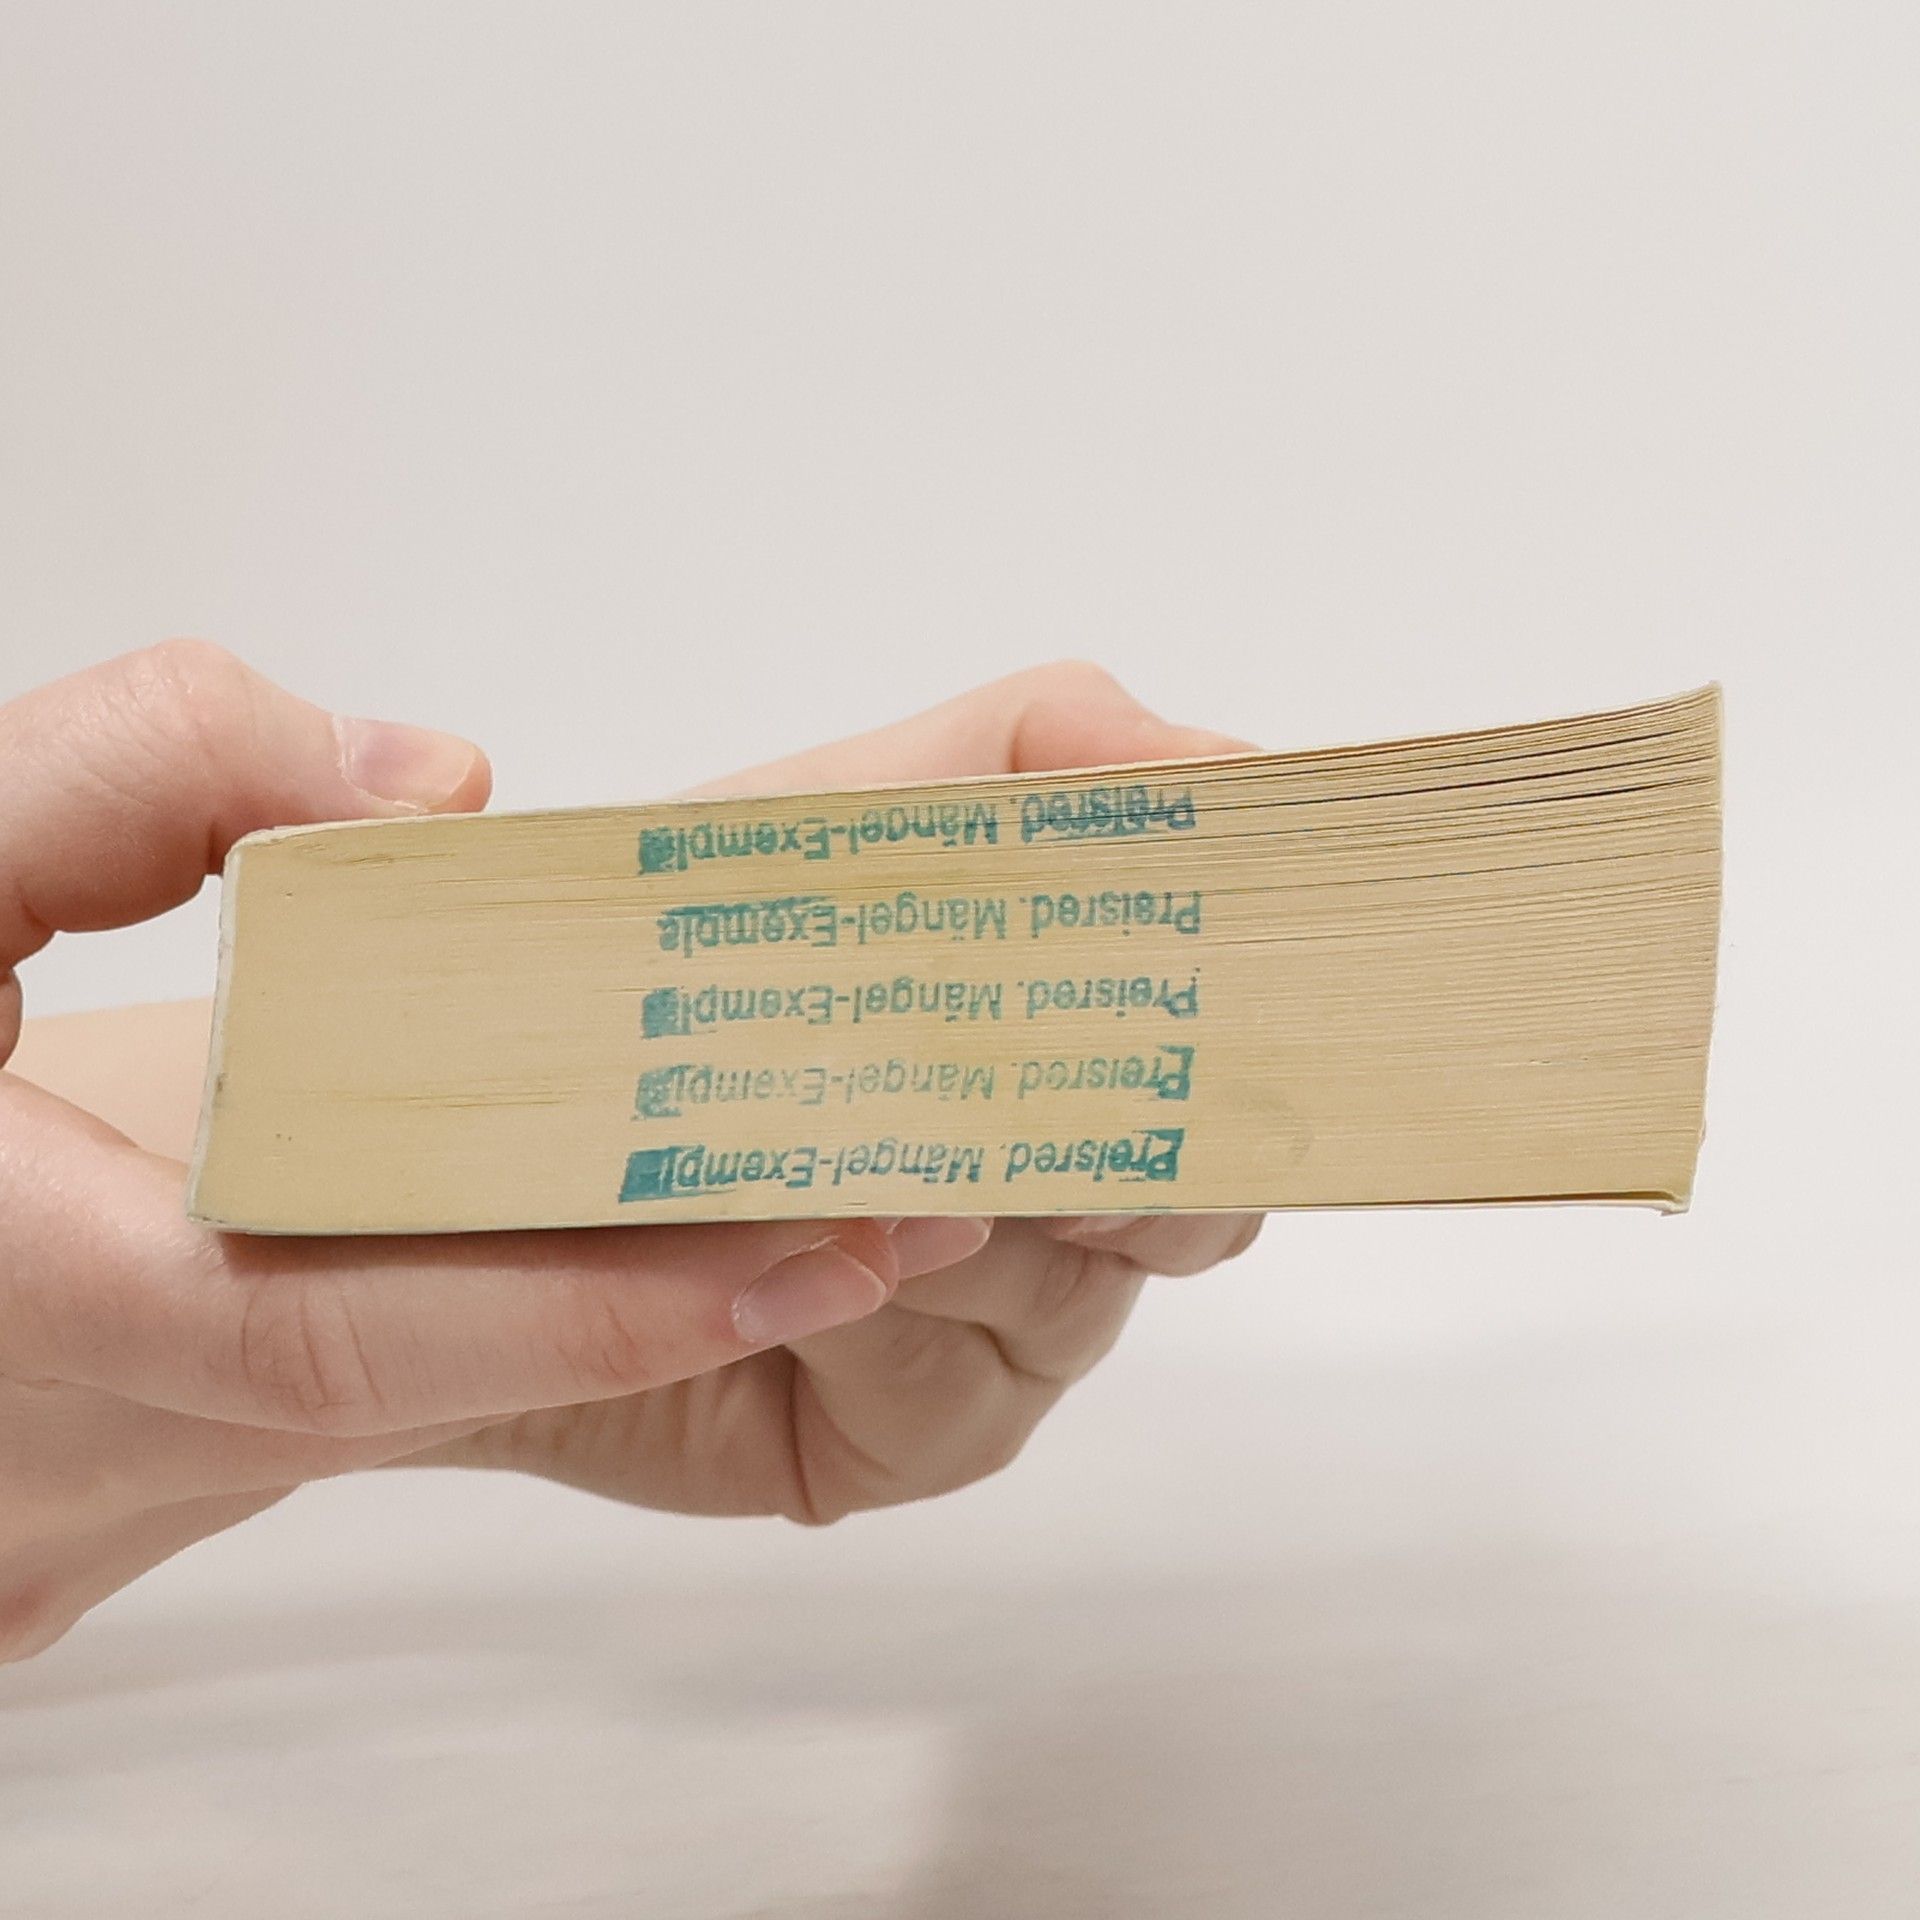 Preisred. Mängel-Exempl
Preisred. Mängel-Exempl
Preisred. Mängel-Exempl
Preisred. Mängel-Exemple
Preisred. Mängel-Exemple